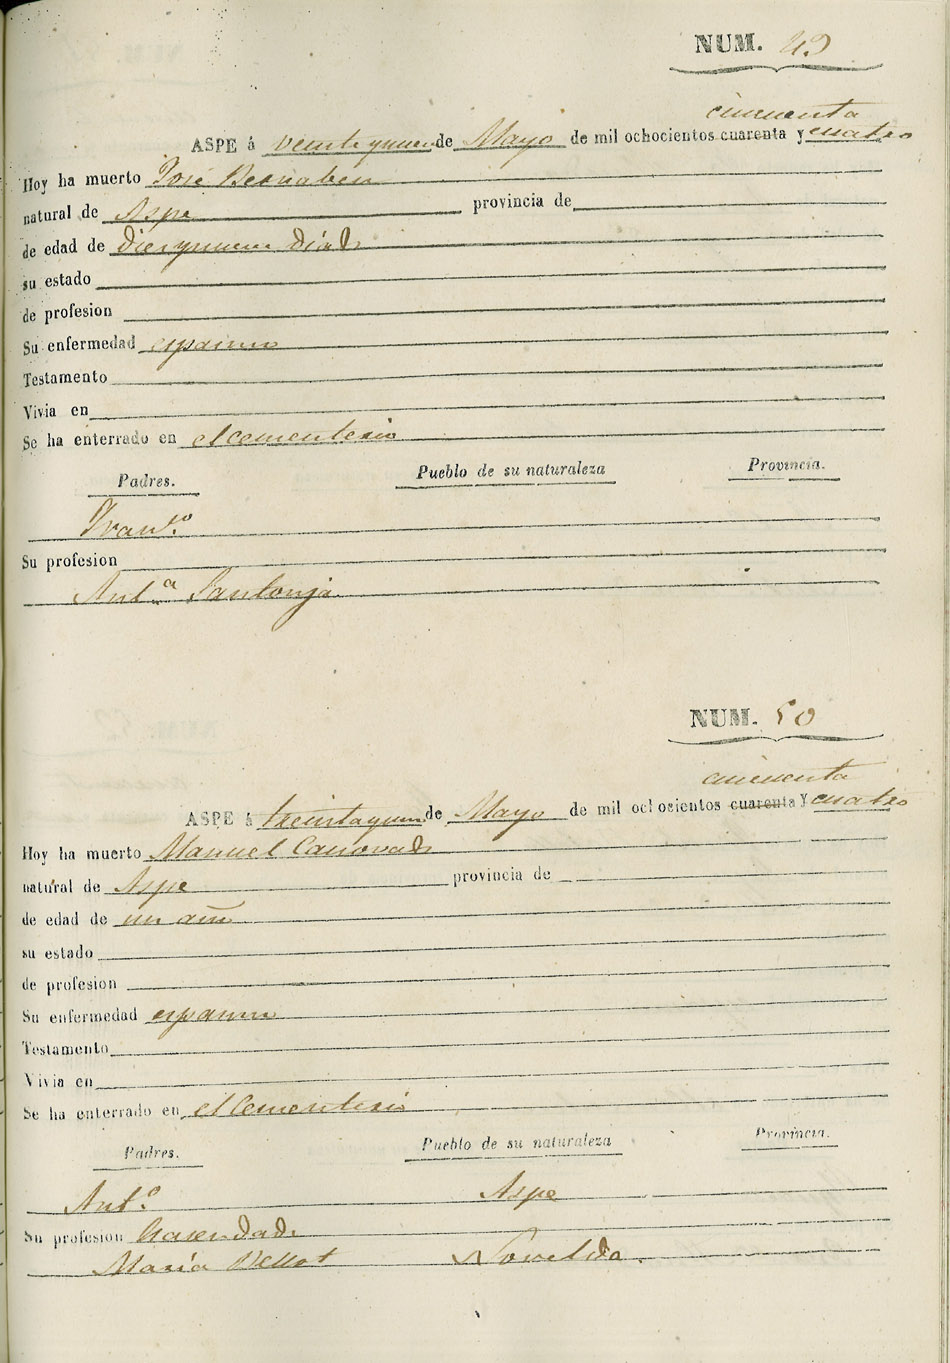 NUM. 49
cincuenta
ASPE á veintynueve de Mayo de mil ochocientos cuarenta y cuatro
Hoy ha muerto José Bernabeu
natural de Aspe provincia de
de edad de diez y nueve dias
su estado
de profesion
Su enfermedad espasmo
Testamento
Vivia en
Se ha enterrado en el cementerio
Padres. Pueblo de su naturaleza Provincia.
Fran.co
Su profesion
Ant.a Santonja
NUM. 50
cincuenta
ASPE á treintayun de Mayo de mil ochosientos cuarenta y cuatro
Hoy ha muerto Manuel Canovas
natural de Aspe provincia de
de edad de un año
su estado
de profesion
Su enfermedad espasmo
Testamento
Vivia en
Se ha enterrado en el Cementerio
Padres. Pueblo de su naturaleza Provincia.
Ant.o Aspe
Su profesion hacendado
María Bellot Novelda